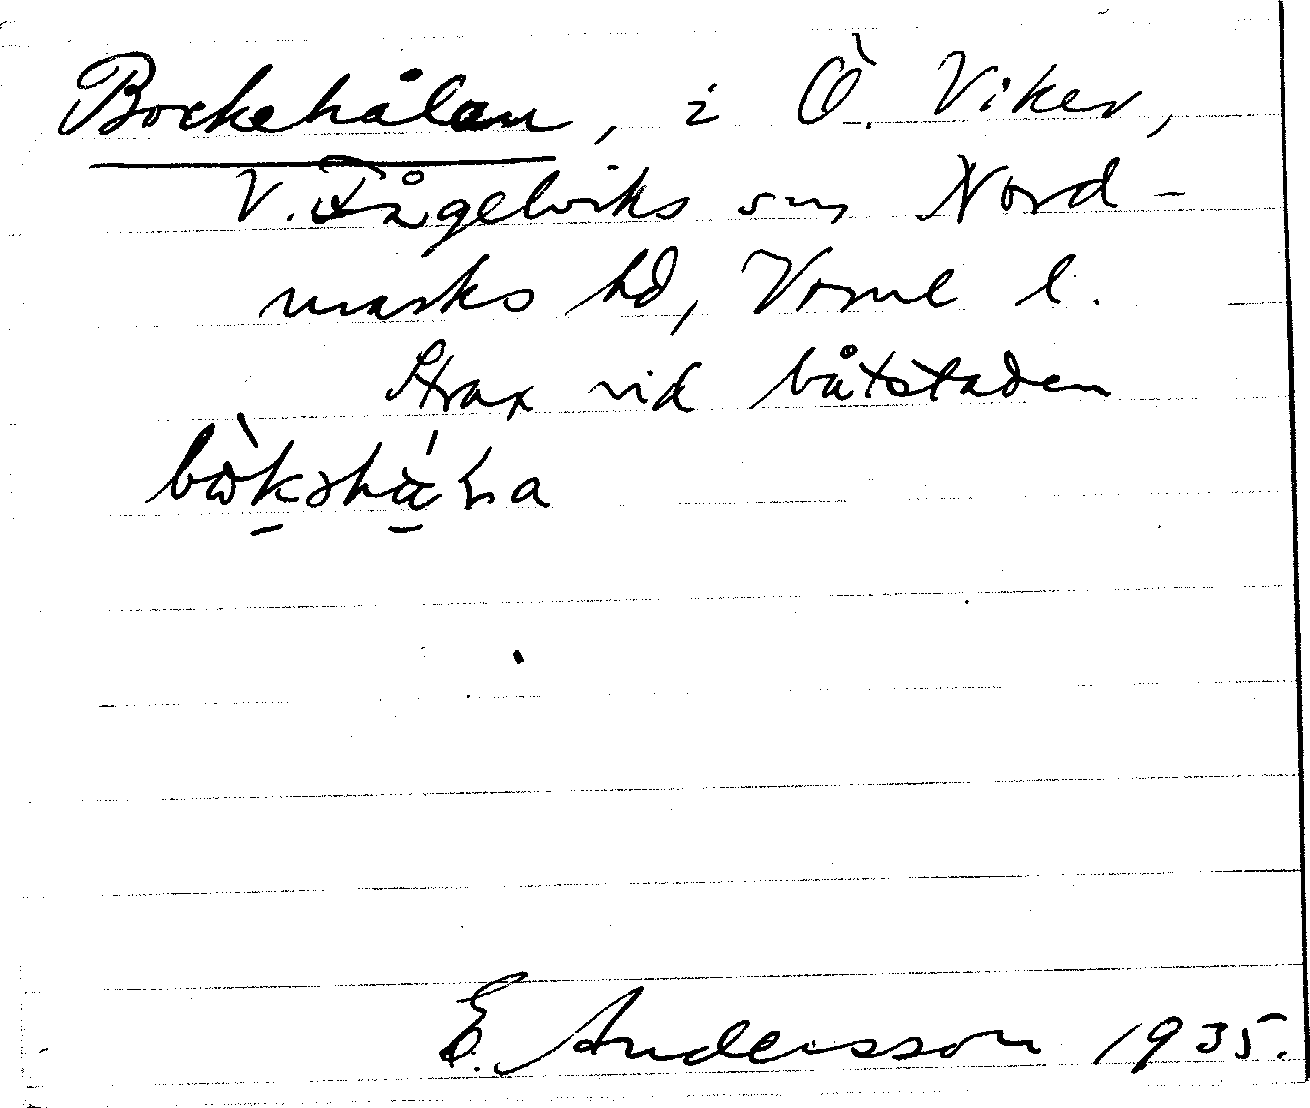 Bockehålan, i Ö. Viker,
V. Fågelviks sn, Nord-
marks hd, Värml l.
Strax vid båtstaden
E. Andersson 1935.